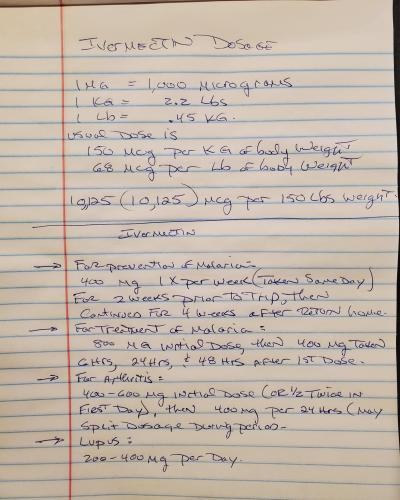 Ivermectin Dosage
1 MG = 1,000 Micrograms
1 KG = 2.2 Lbs
1 Lb = .45 KG.
usual Dose is
150 Mcg per KG of body Weight
68 Mcg per Lb of body Weight
10,125 (10,125) Mcg per 150 Lbs Weight.
Ivermectin
→ For prevention of Malaria =
400 mg 1 X per Week (Taken Same Day)
For 2 weeks prior To Trip, Then
Continued For 4 weeks after Return home.
→ For Treatment of Malaria =
800 MG initial Dose, then 400 mg Taken
6 Hrs, 24 Hrs, & 48 Hrs after 1st Dose.
→ For Arthritis =
400-600 mg initial Dose (OR 1/2 Twice in
First Day), then 400 mg per 24 Hrs (May
Split Dosage During period -
→ Lupus :
200-400 Mg per Day.